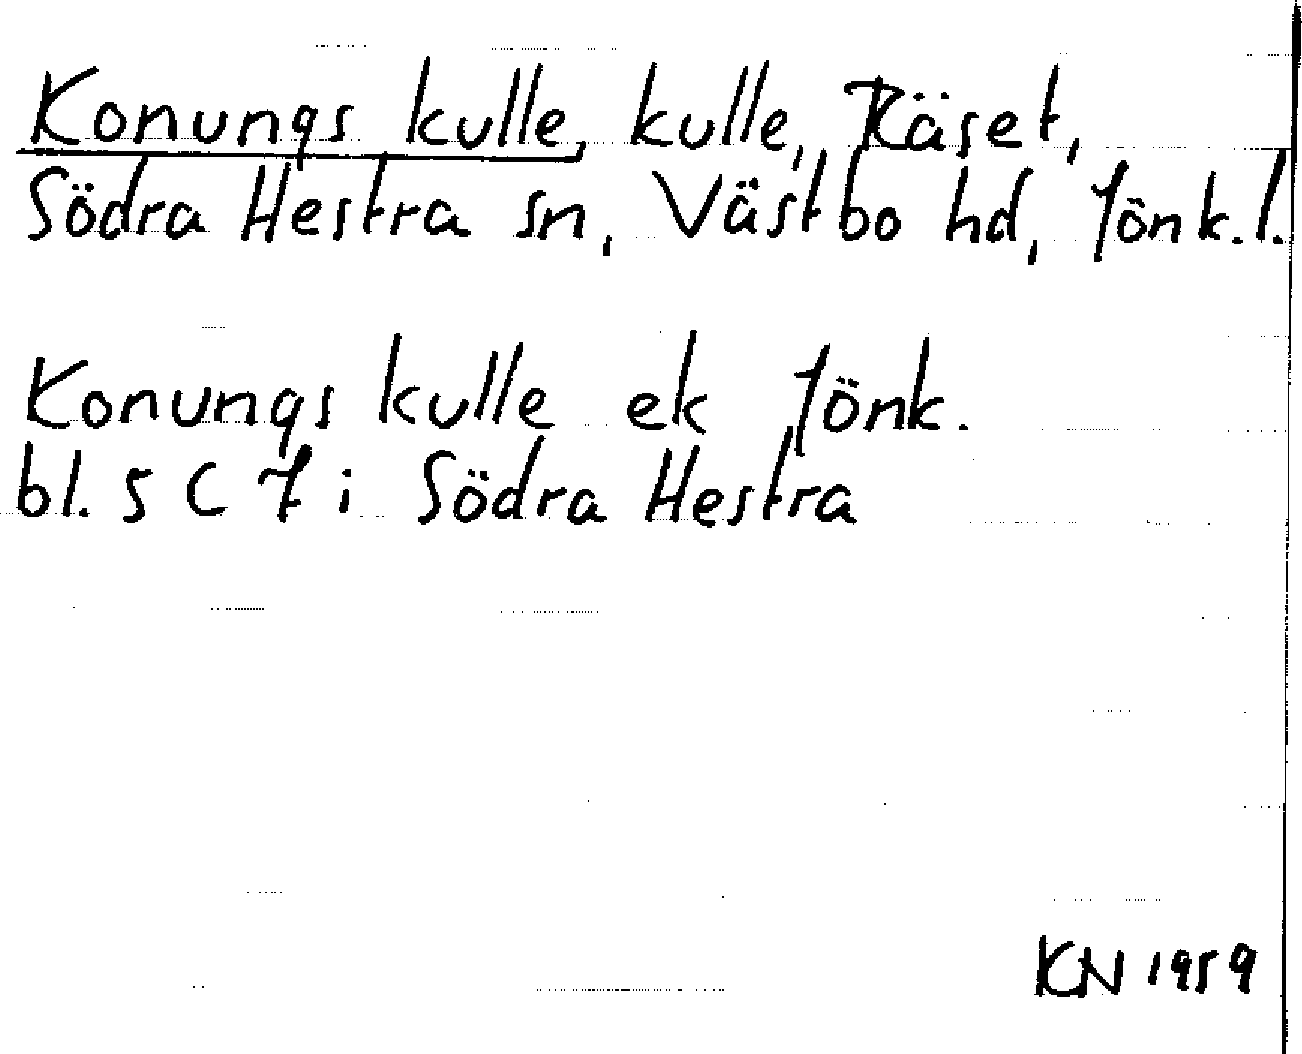 Konungs kulle, kulle, Räset,
Södra Hestra sn, Västbo hd, Jönk.l.
Konungs kulle ek Jönk.
bl. 5 C 7 i Södra Hestra
KN 1959